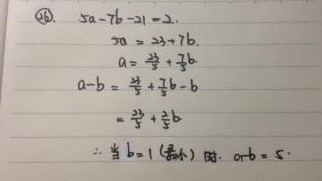 26. 5a-7b-21=2.
5a = 23+7b.
a = 23/5 + 7/5 b.
a-b = 23/5 + 7/5 b - b
= 23/5 + 2/5 b.
∴ 当 b=1 (最小) 时. a-b = 5.